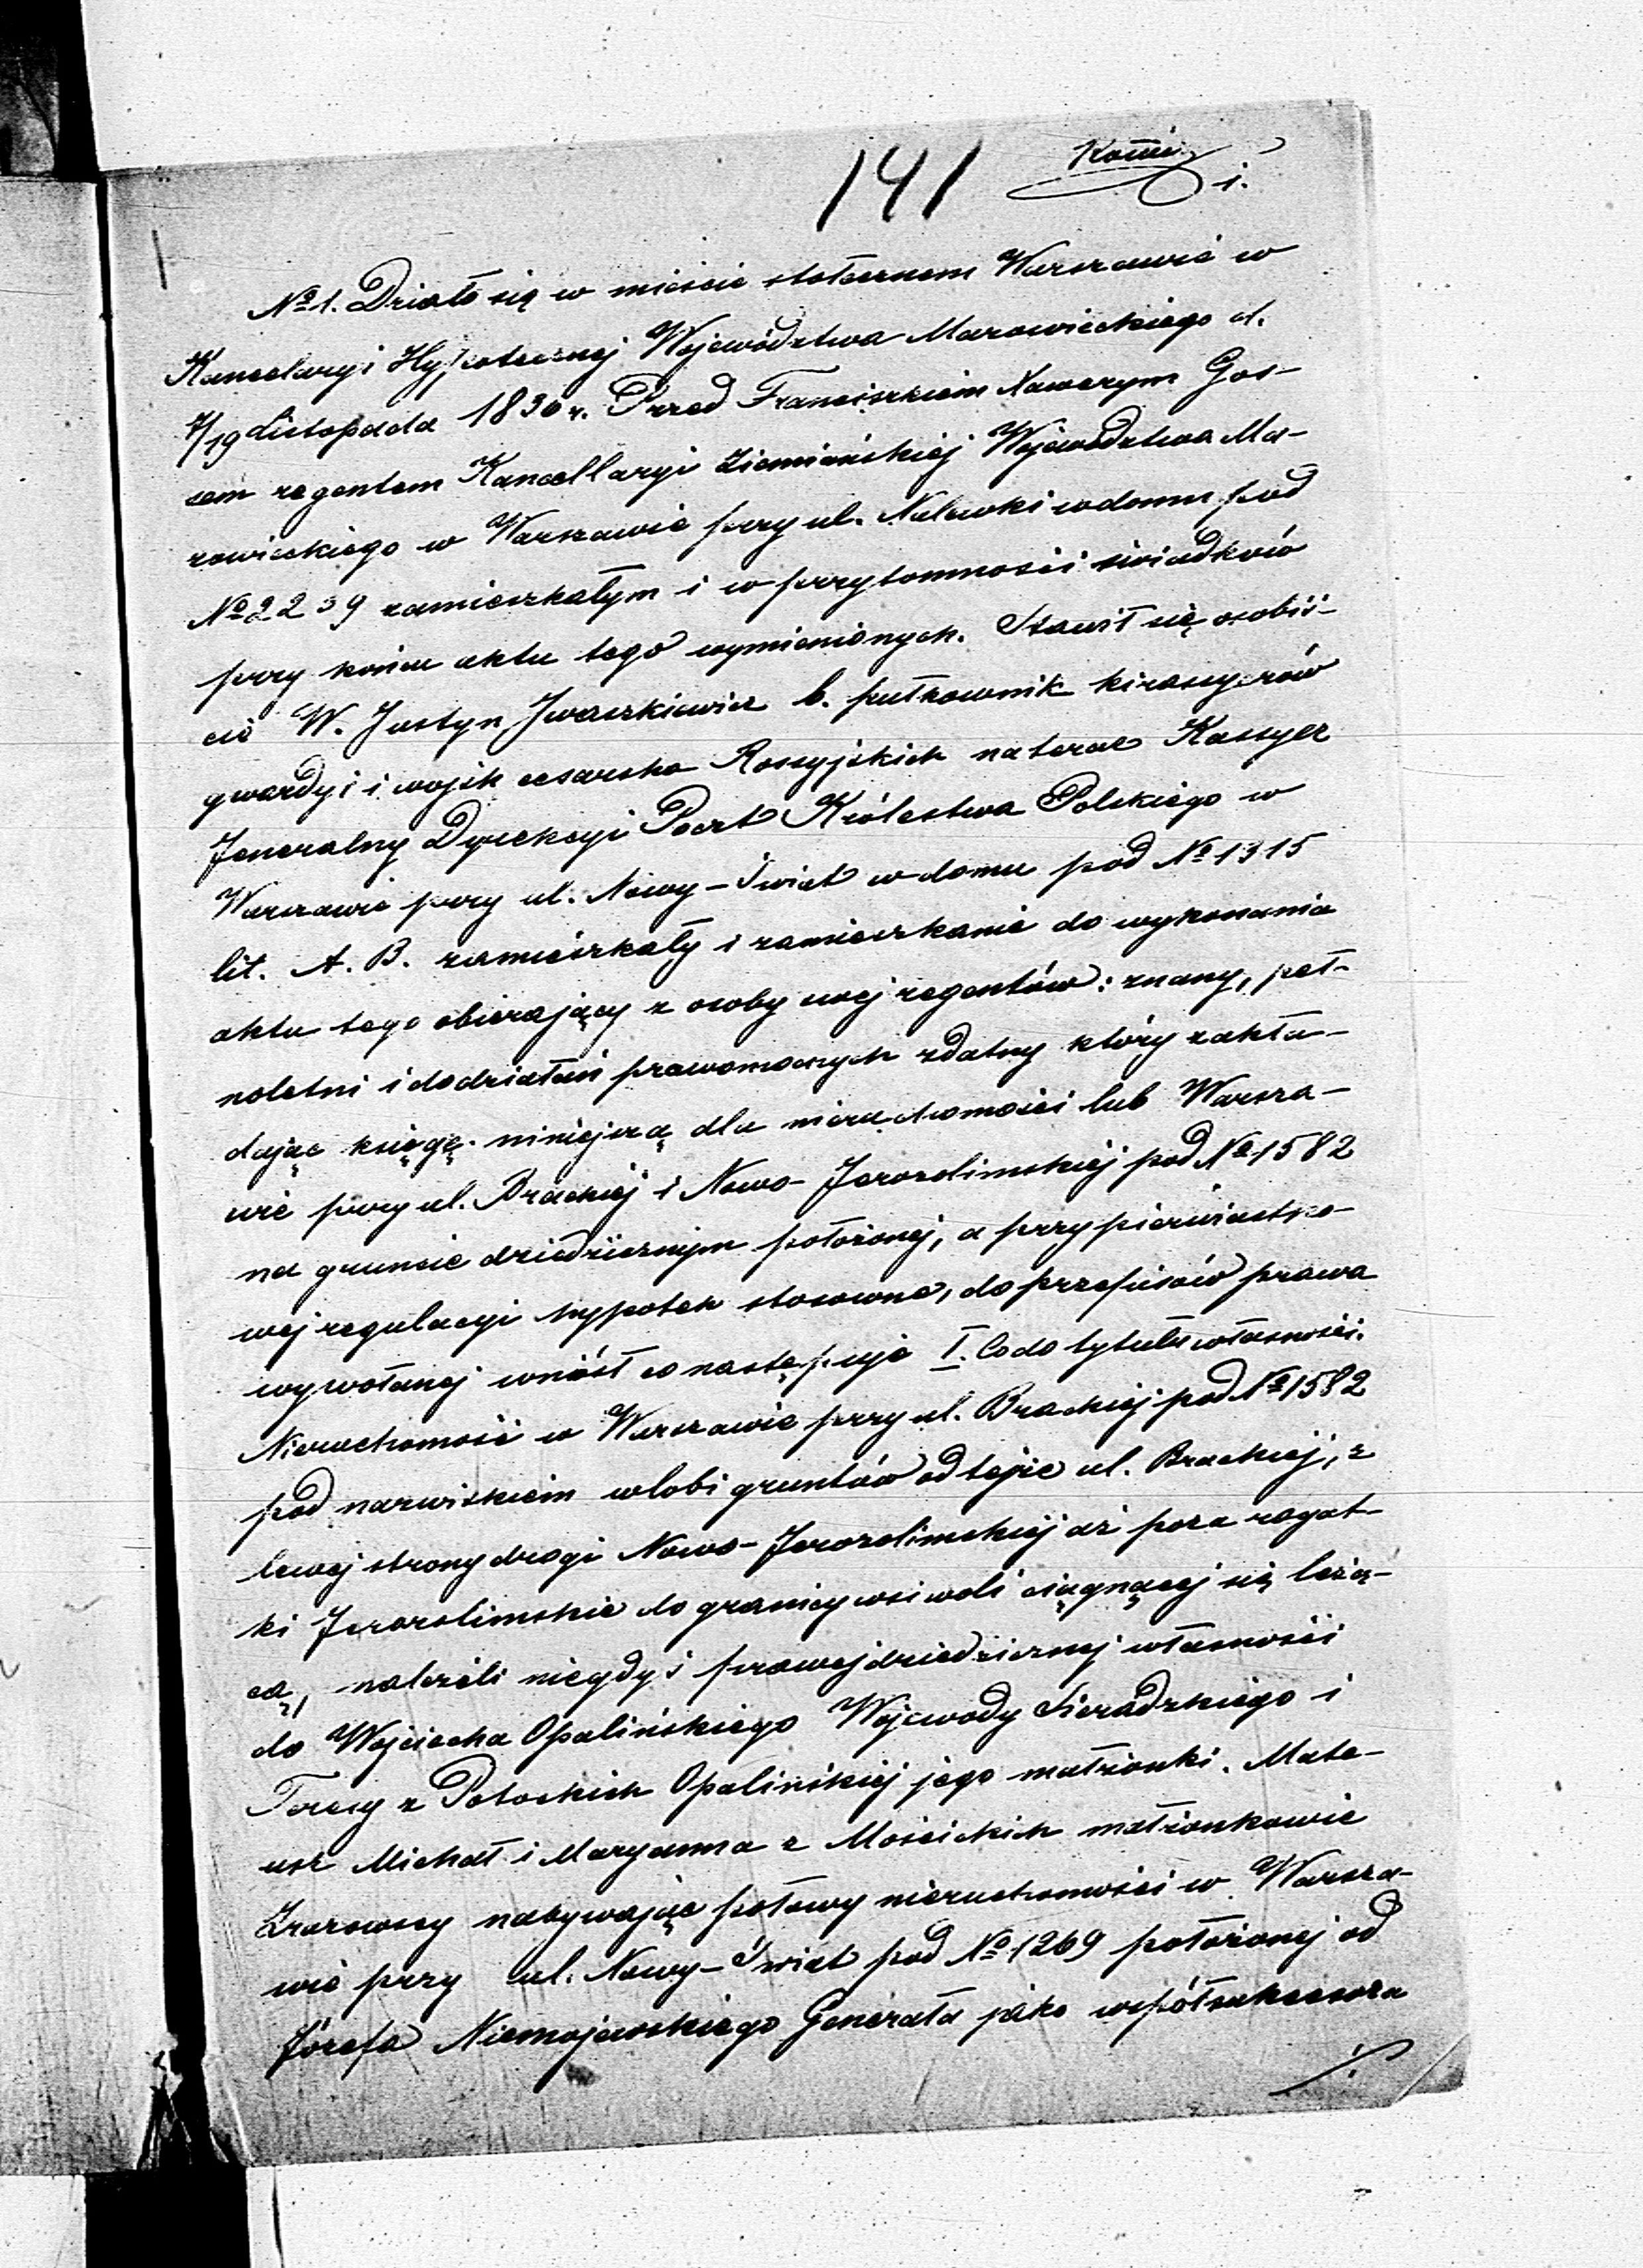 141
1.
№ 1. Działo się w mieście stołecznem Warszawie w
Kancelaryi Hypotecznej Województwa Mazowieckiego d.
7/19 Listopada 1830 r. Przed Franciszkiem Xawerym Gos-
sem regentem Kancellaryi Ziemiańskiej Województwa Ma-
zowieckiego w Warszawie przy ul. Nalewki w domu pod
№ 2239 zamieszkałym i w przytomności świadków
przy końcu aktu tego wymienionych. Stawił się osobiś-
cie W. Justyn Iwaszkiewicz b. pułkownik kirasyerów
gwardyi i wojsk cesarsko Rossyjskich na teraz Kassyer
Jeneralny Dyrekcyi Poczt Królestwa Polskiego w
Warszawie przy ul. Nowy-Świat w domu pod № 1315
lit. A. B. zamieszkały i zamieszkanie do wykonania
aktu tego obierający z osoby swej regentów: znany, peł-
noletni i do działań prawomocnych zdatny który zakła-
dając księgę niniejszą dla nieruchomości lub Warsza-
wie przy ul. Brackiej i Nowo-Jerozolimskiej pod № 1582
na gruncie dziedzicznym położonej, a przy pierwiastko-
wej regulacyi hypotek stosowne, do przepisów prawa
wywołanej wniósł co następuje I. Co do tytułu własności.
Nieruchomość w Warszawie przy ul. Brackiej pod № 1582
pod nazwiskiem wlobi gruntów od tejże ul. Brackiej, z
lewej strony drogi Nowo-Jerozolimskiej aż poza rogat-
ki Jerozolimskie do granicy wsi woli ciągnącej się leżą-
cą, należeli niegdyś prawej dziedzicznej własności
do Wojciecha Opalińskiego Wojewody Sieradzkiego i
Teresy z Potockich Opalińskiej jego małżonki. Mate-
usz Michał i Maryanna z Mościckich małżonkowie
Zrazowscy nabywając połowy nieruchomości w Warsza-
wie przy ul. Nowy-Świat pod № 1269 położonej od
Józefa Niemojewskiego Generała jako współsukcesora